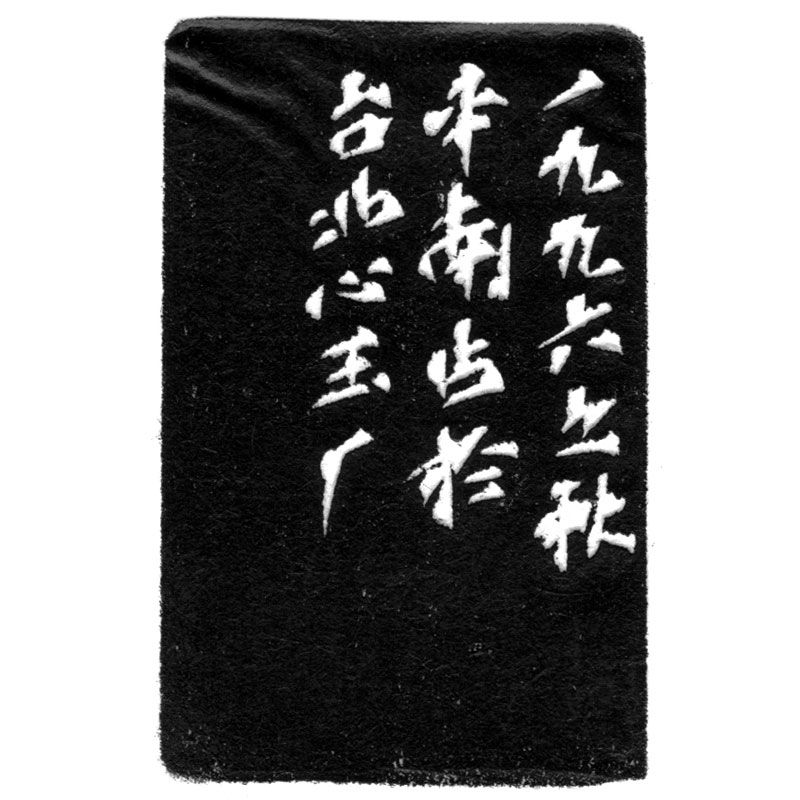 一九九六之秋
平南於
台北心玉厂